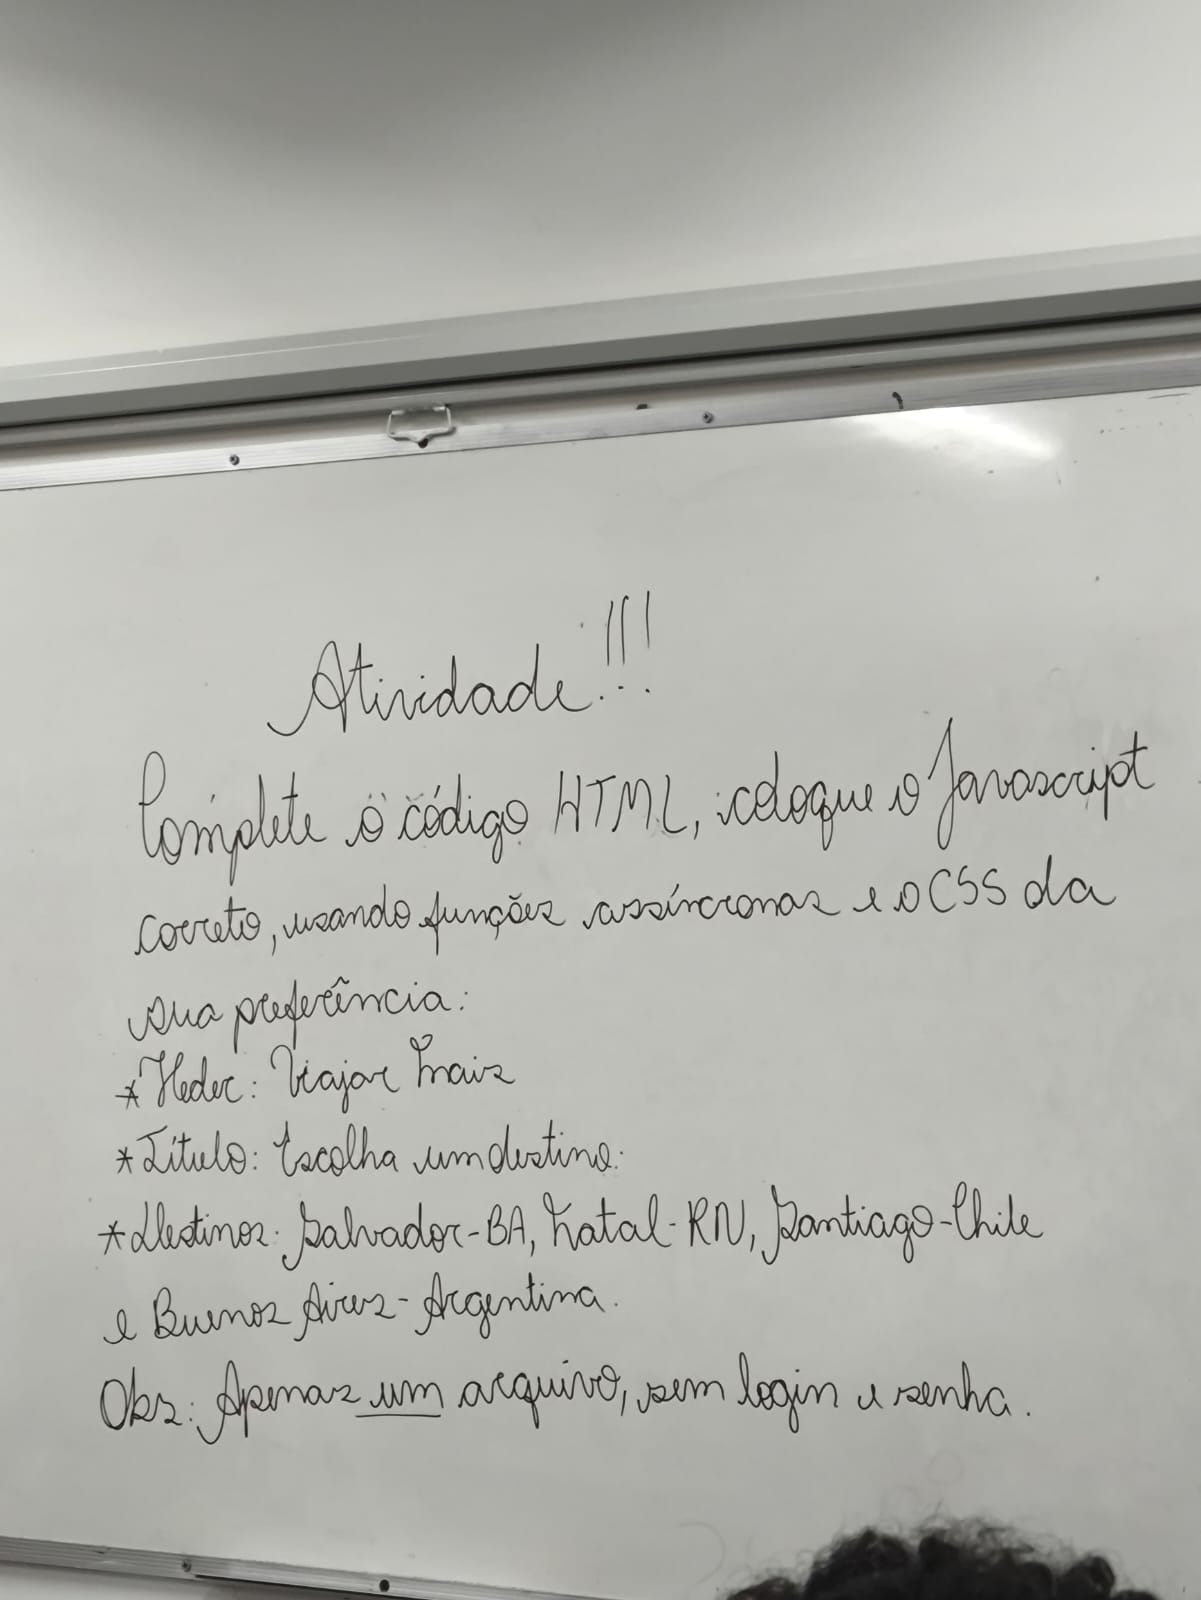 Atividade!!!
Complete o código HTML, coloque o Javascript
correto, usando funções assíncronas e o CSS da
sua preferência:
* Heder: Viajar Mais
* Título: Escolha um destino:
* Destinos: Salvador-BA, Natal-RN, Santiago-Chile
e Buenos Aires-Argentina.
Obs: Apenas um arquivo, sem login e senha.